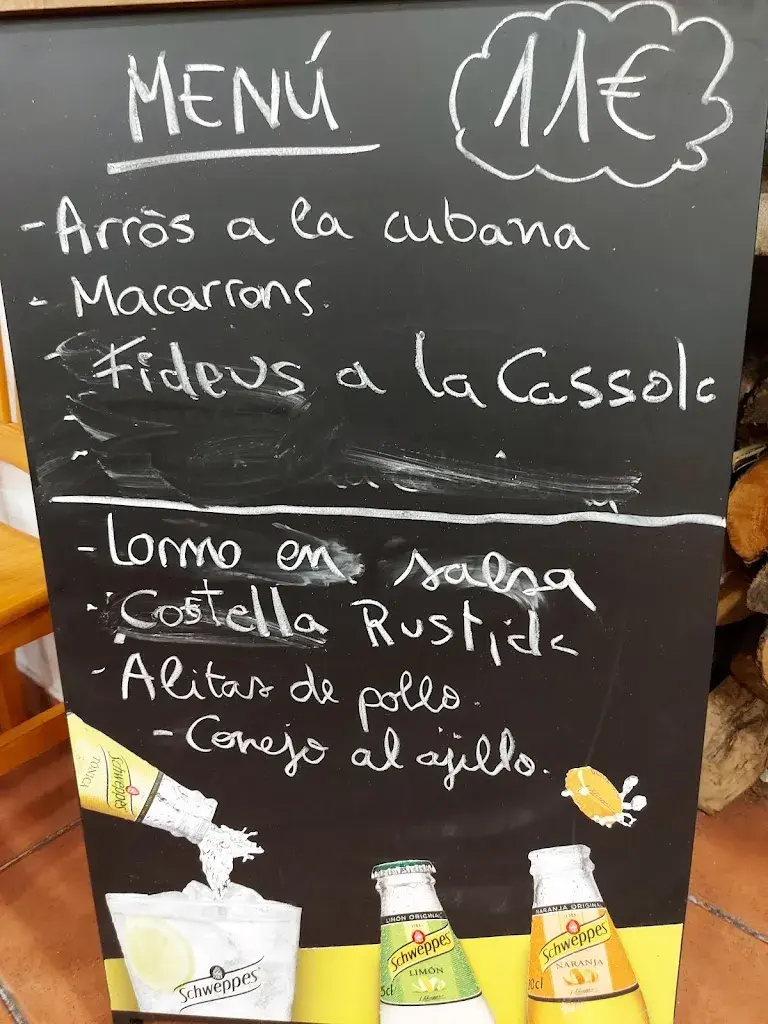 MENÚ
11€
- Arròs a la cubana
- Macarrons.
- Fideus a la Cassola
- Lomo en salsa
- Costella Rustida
- Alitas de pollo.
- Conejo al ajillo.
Schweppes
TÓNICA
Schweppes
LIMÓN ORIGINAL
Schweppes
LIMÓN
NARANJA ORIGINAL
Schweppes
NARANJA